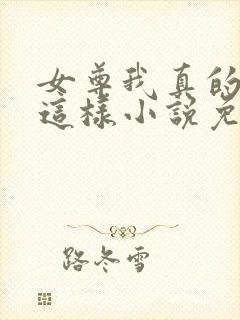 女尊我真的
這樣小說免
路冬雪